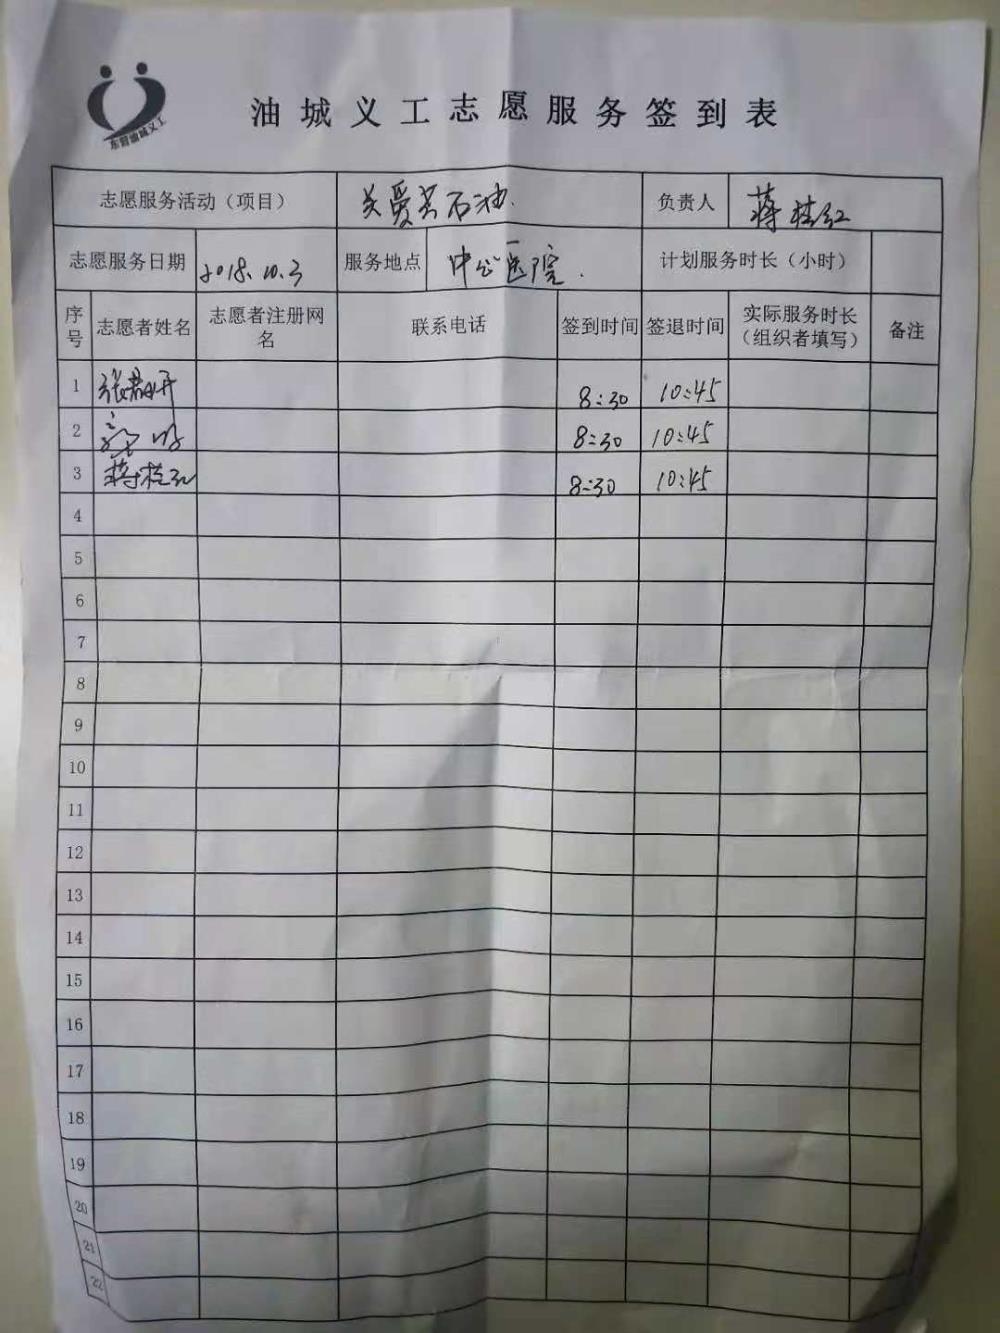 东营油城义工
油城义工志愿服务签到表
志愿服务活动（项目） 关爱 石油. 负责人 蒋桂红
志愿服务日期 2018.10.3 服务地点 中心医院. 计划服务时长（小时）
序号 志愿者姓名 志愿者注册网名 联系电话 签到时间 签退时间 实际服务时长（组织者填写） 备注
1 8:30 10:45
2 8:30 10:45
3 蒋桂红 8:30 10:45
4
5
6
7
8
9
10
11
12
13
14
15
16
17
18
19
20
21
22